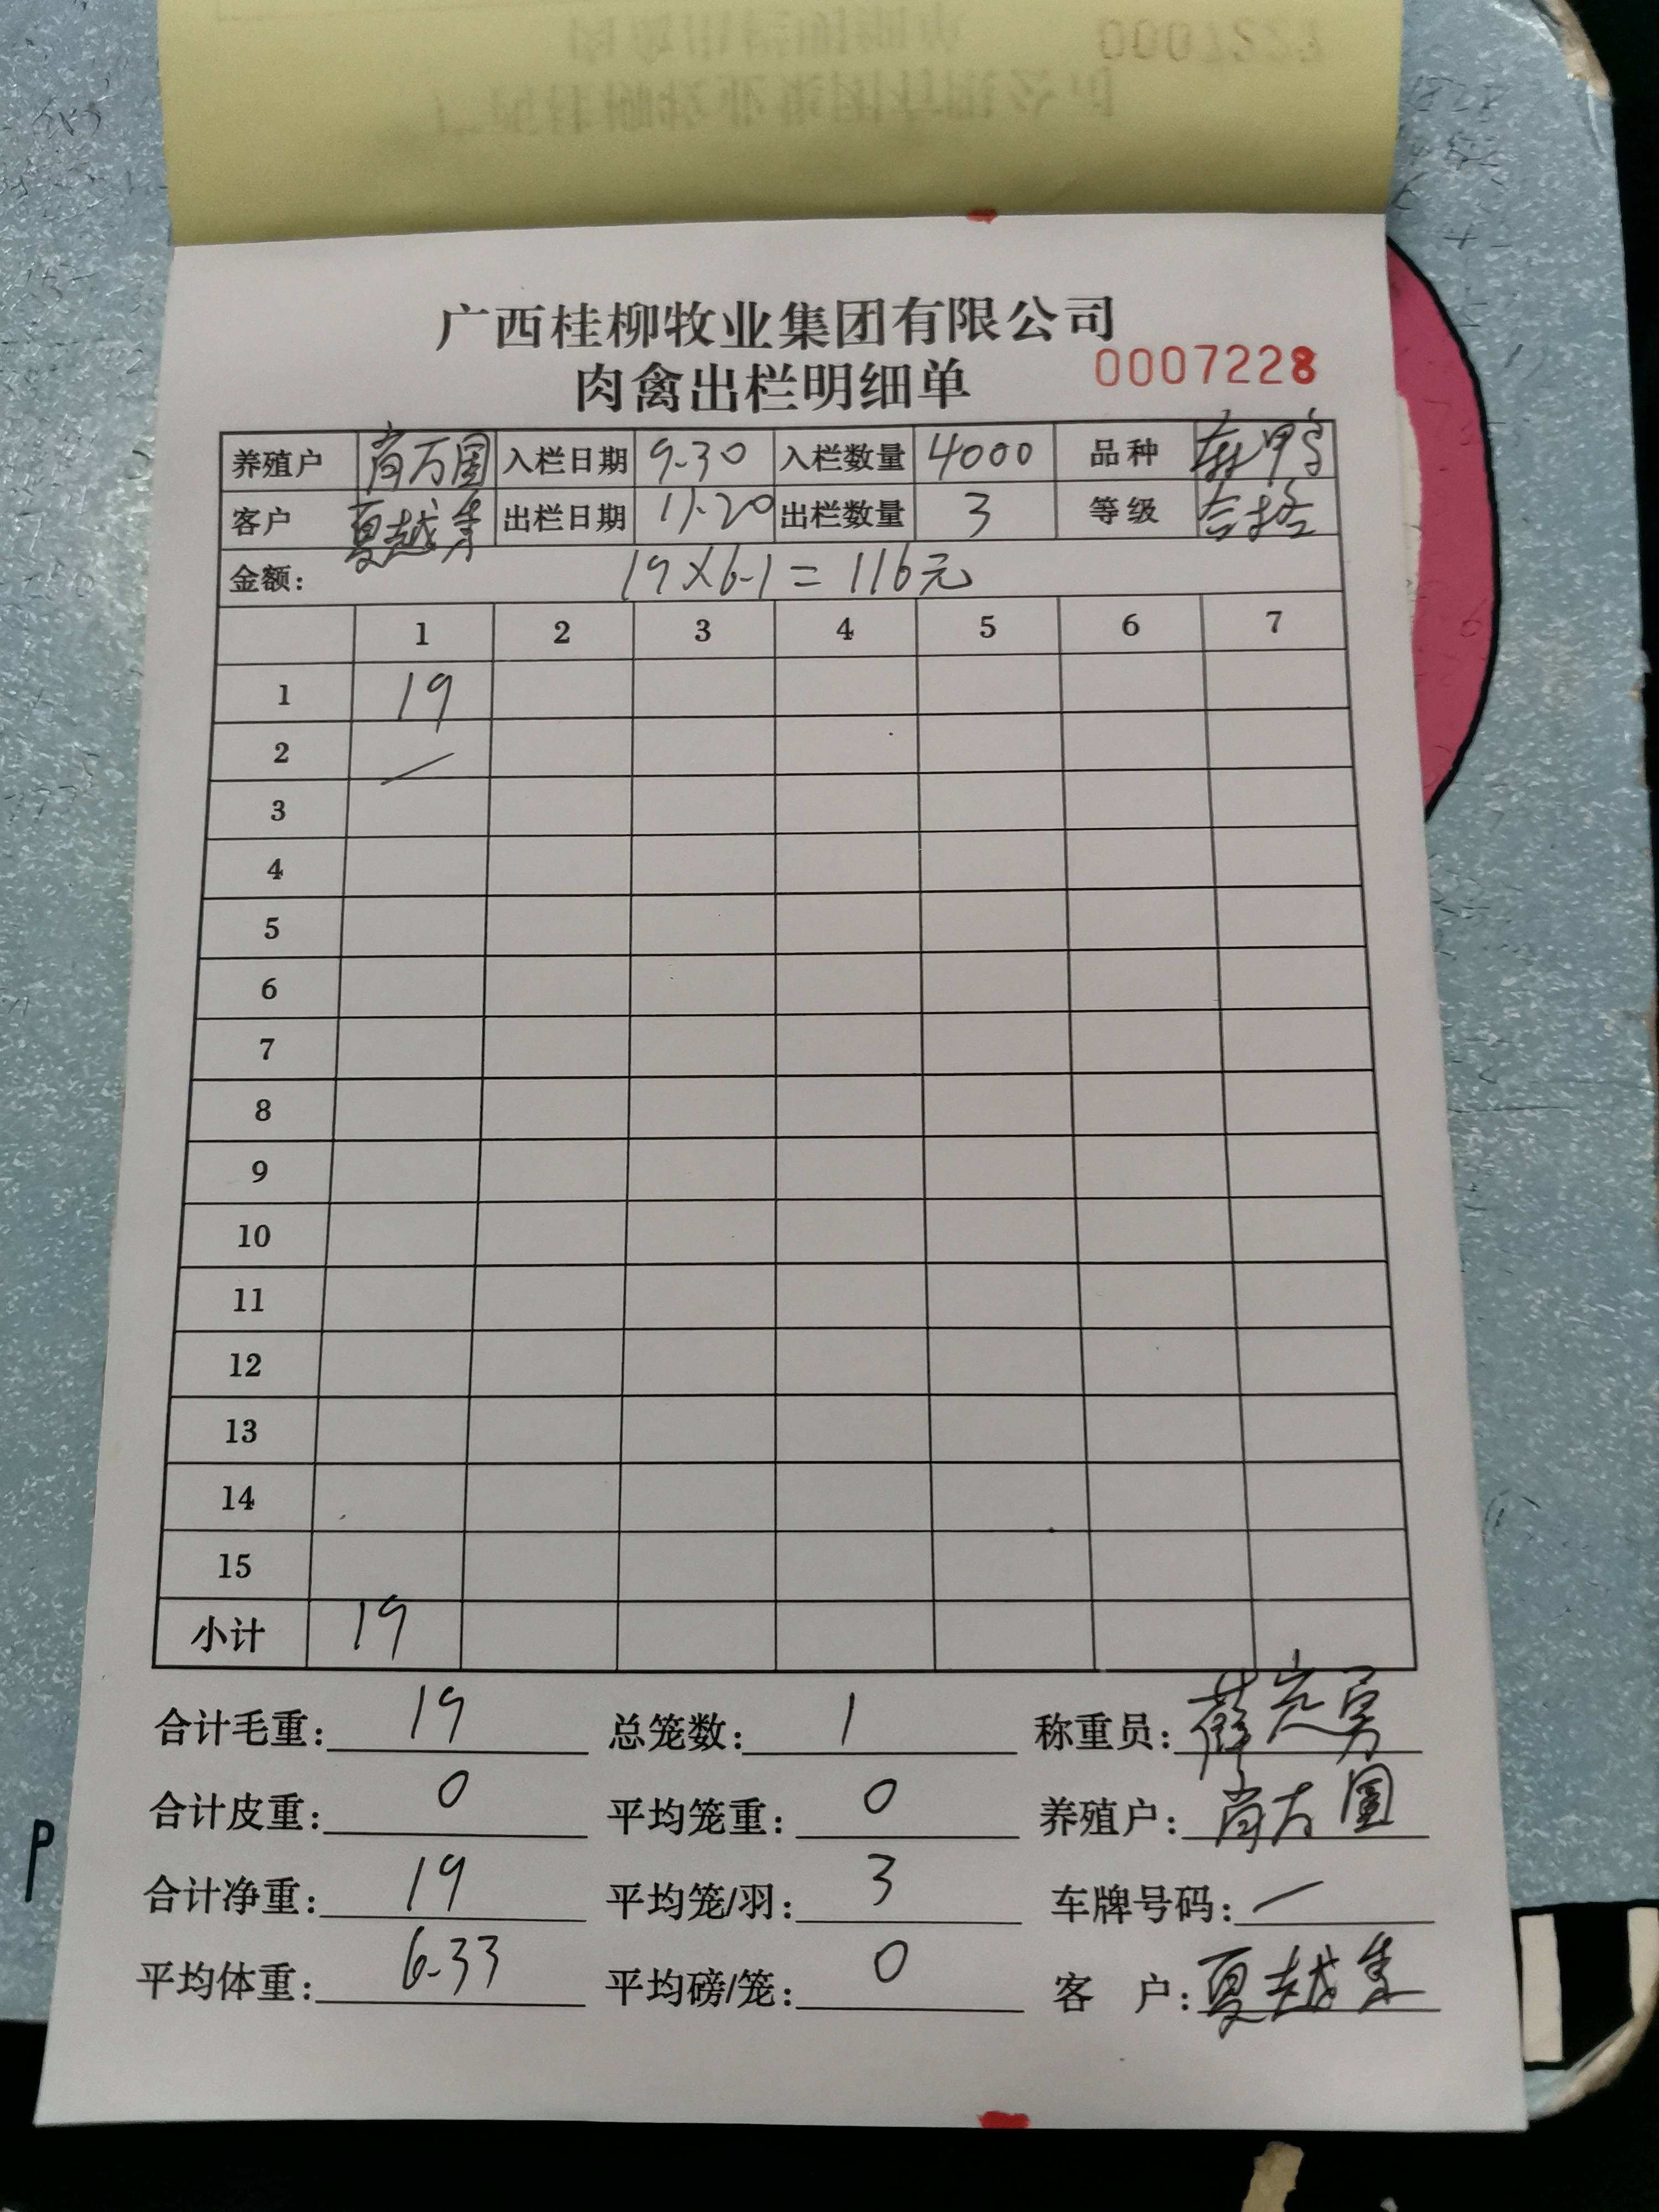 广西桂柳牧业集团有限公司
肉禽出栏明细单 0007228
养殖户 肖万国 入栏日期 9-30 入栏数量 4000 品种 麻鸭
客户 夏越 出栏日期 11-20 出栏数量 3 等级 合格
金额: 19×6-1=116元
1 2 3 4 5 6 7
1 19
2
3
4
5
6
7
8
9
10
11
12
13
14
15
小计 19
合计毛重: 19 总笼数: 1 称重员: 薛
合计皮重: 0 平均笼重: 0 养殖户: 肖万国
合计净重: 19 平均笼/羽: 3 车牌号码: 一
平均体重: 6-33 平均磅/笼: 0 客 户: 夏越
P